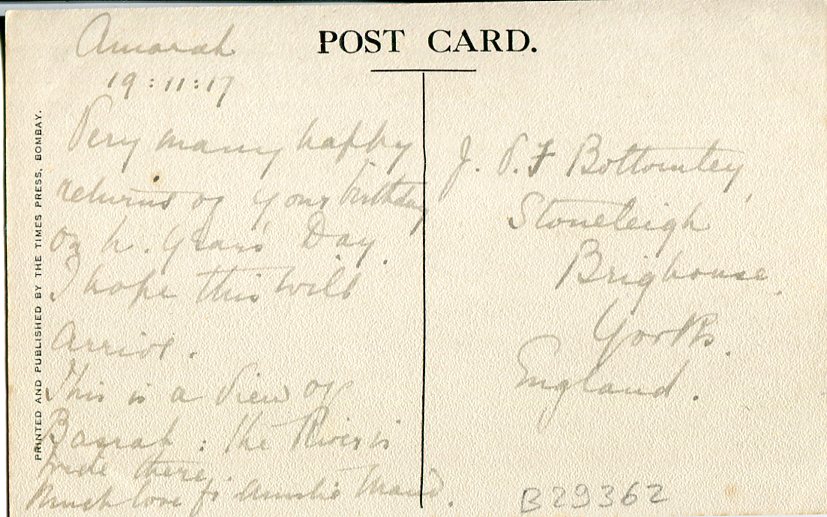 POST CARD.
Amarah
19:11:17
Very many happy
returns of your birthday
on N. Years Day.
I hope this will
arrive.
This is a view of
Basrah: the River is
wide there.
Much love fr. Auntie Maud.
J. V. F Bottomley,
Stoneleigh
Brighouse,
Yorks.
England.
B29362
PRINTED AND PUBLISHED BY THE TIMES PRESS, BOMBAY.